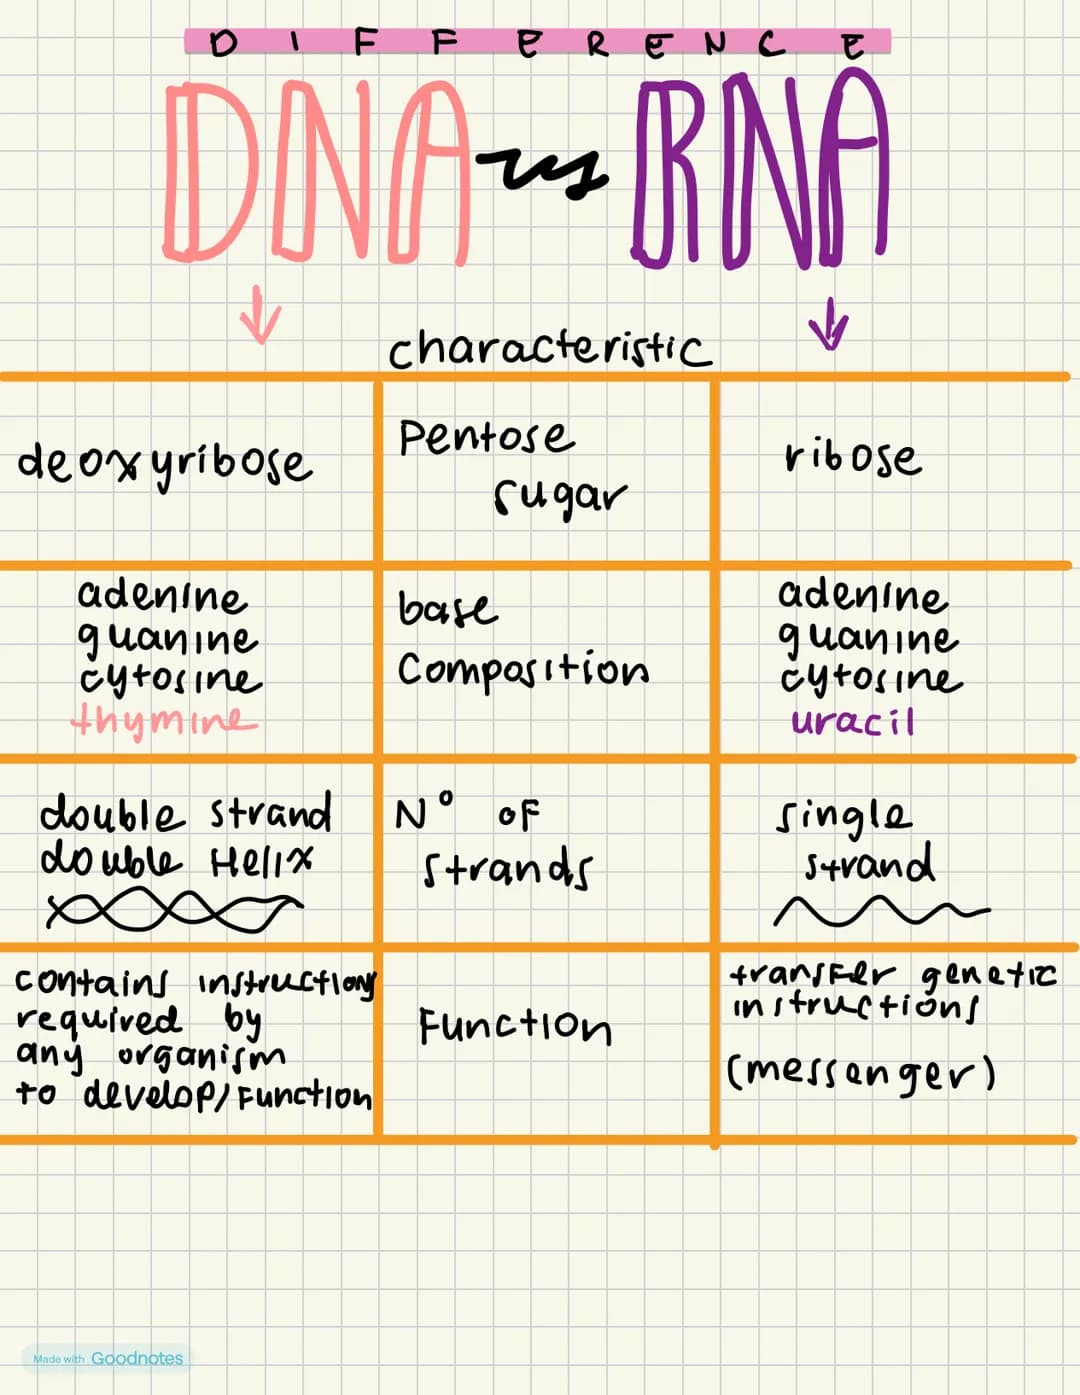 DIFFERENCE
DNA vs RNA
characteristic
deoxyribose
Pentose
sugar
ribose
adenine
guanine
cytosine
thymine
base
Composition
adenine
guanine
cytosine
uracil
double strand
double Helix
N° of
strands
single
strand
contains instructions
required by
any organism
to develop/Function
Function
transfer genetic
instructions
(messenger)
Made with Goodnotes